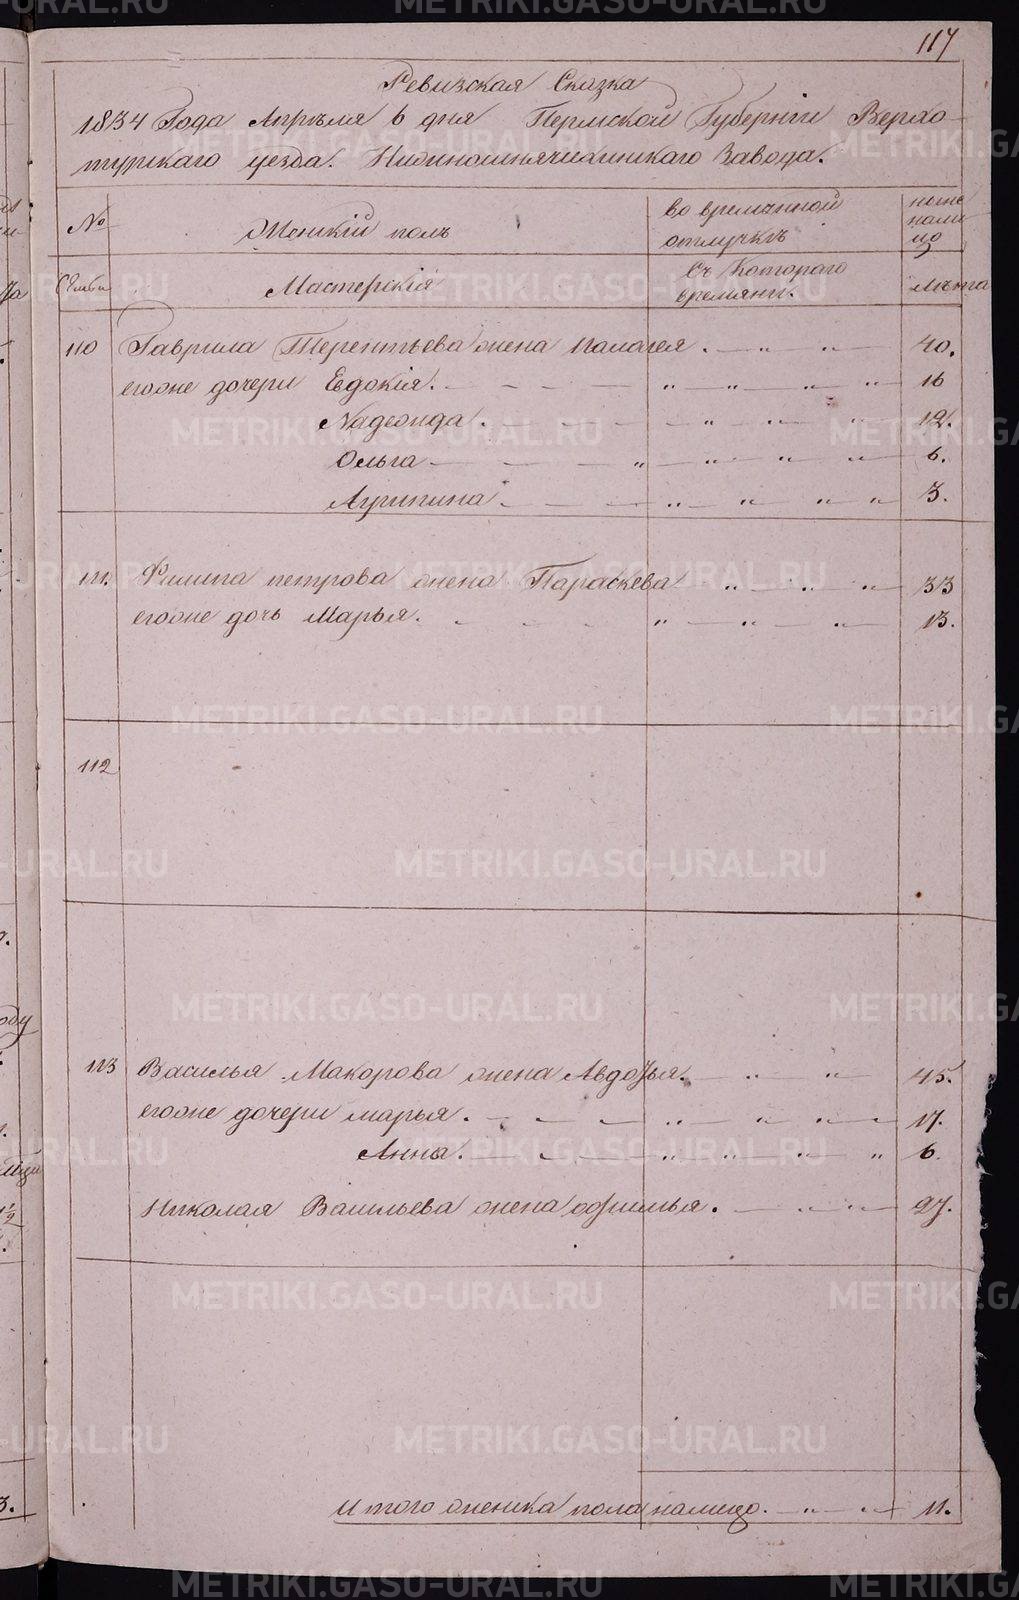 117
Ревизская Сказка
1834 Года Апреля 6 дня Пермской Губернiи Верхо-
турскаго уезда. Завода.
№ Женскiй полъ во временной отлучкѣ ныне нали цо
Семьи Мастерскiя Съ Котораго времяни. лѣта
110 Гаврила Терентьева жена Палагея. 40.
егоже дочери Евдокiя. 16
Надежда. 12.
Ольга 6.
Агрипина. 3.
111. Филипа петрова жена Параскева 33
егоже дочь Марья. 13.
112
113 Василья Макорова жена Авдотья. 45.
егоже дочери марья. 17.
Анна. 6.
Николая Васильева жена офимья. 27.
Итого женска пола налицо. 11.
METRIKI.GASO-URAL.RU